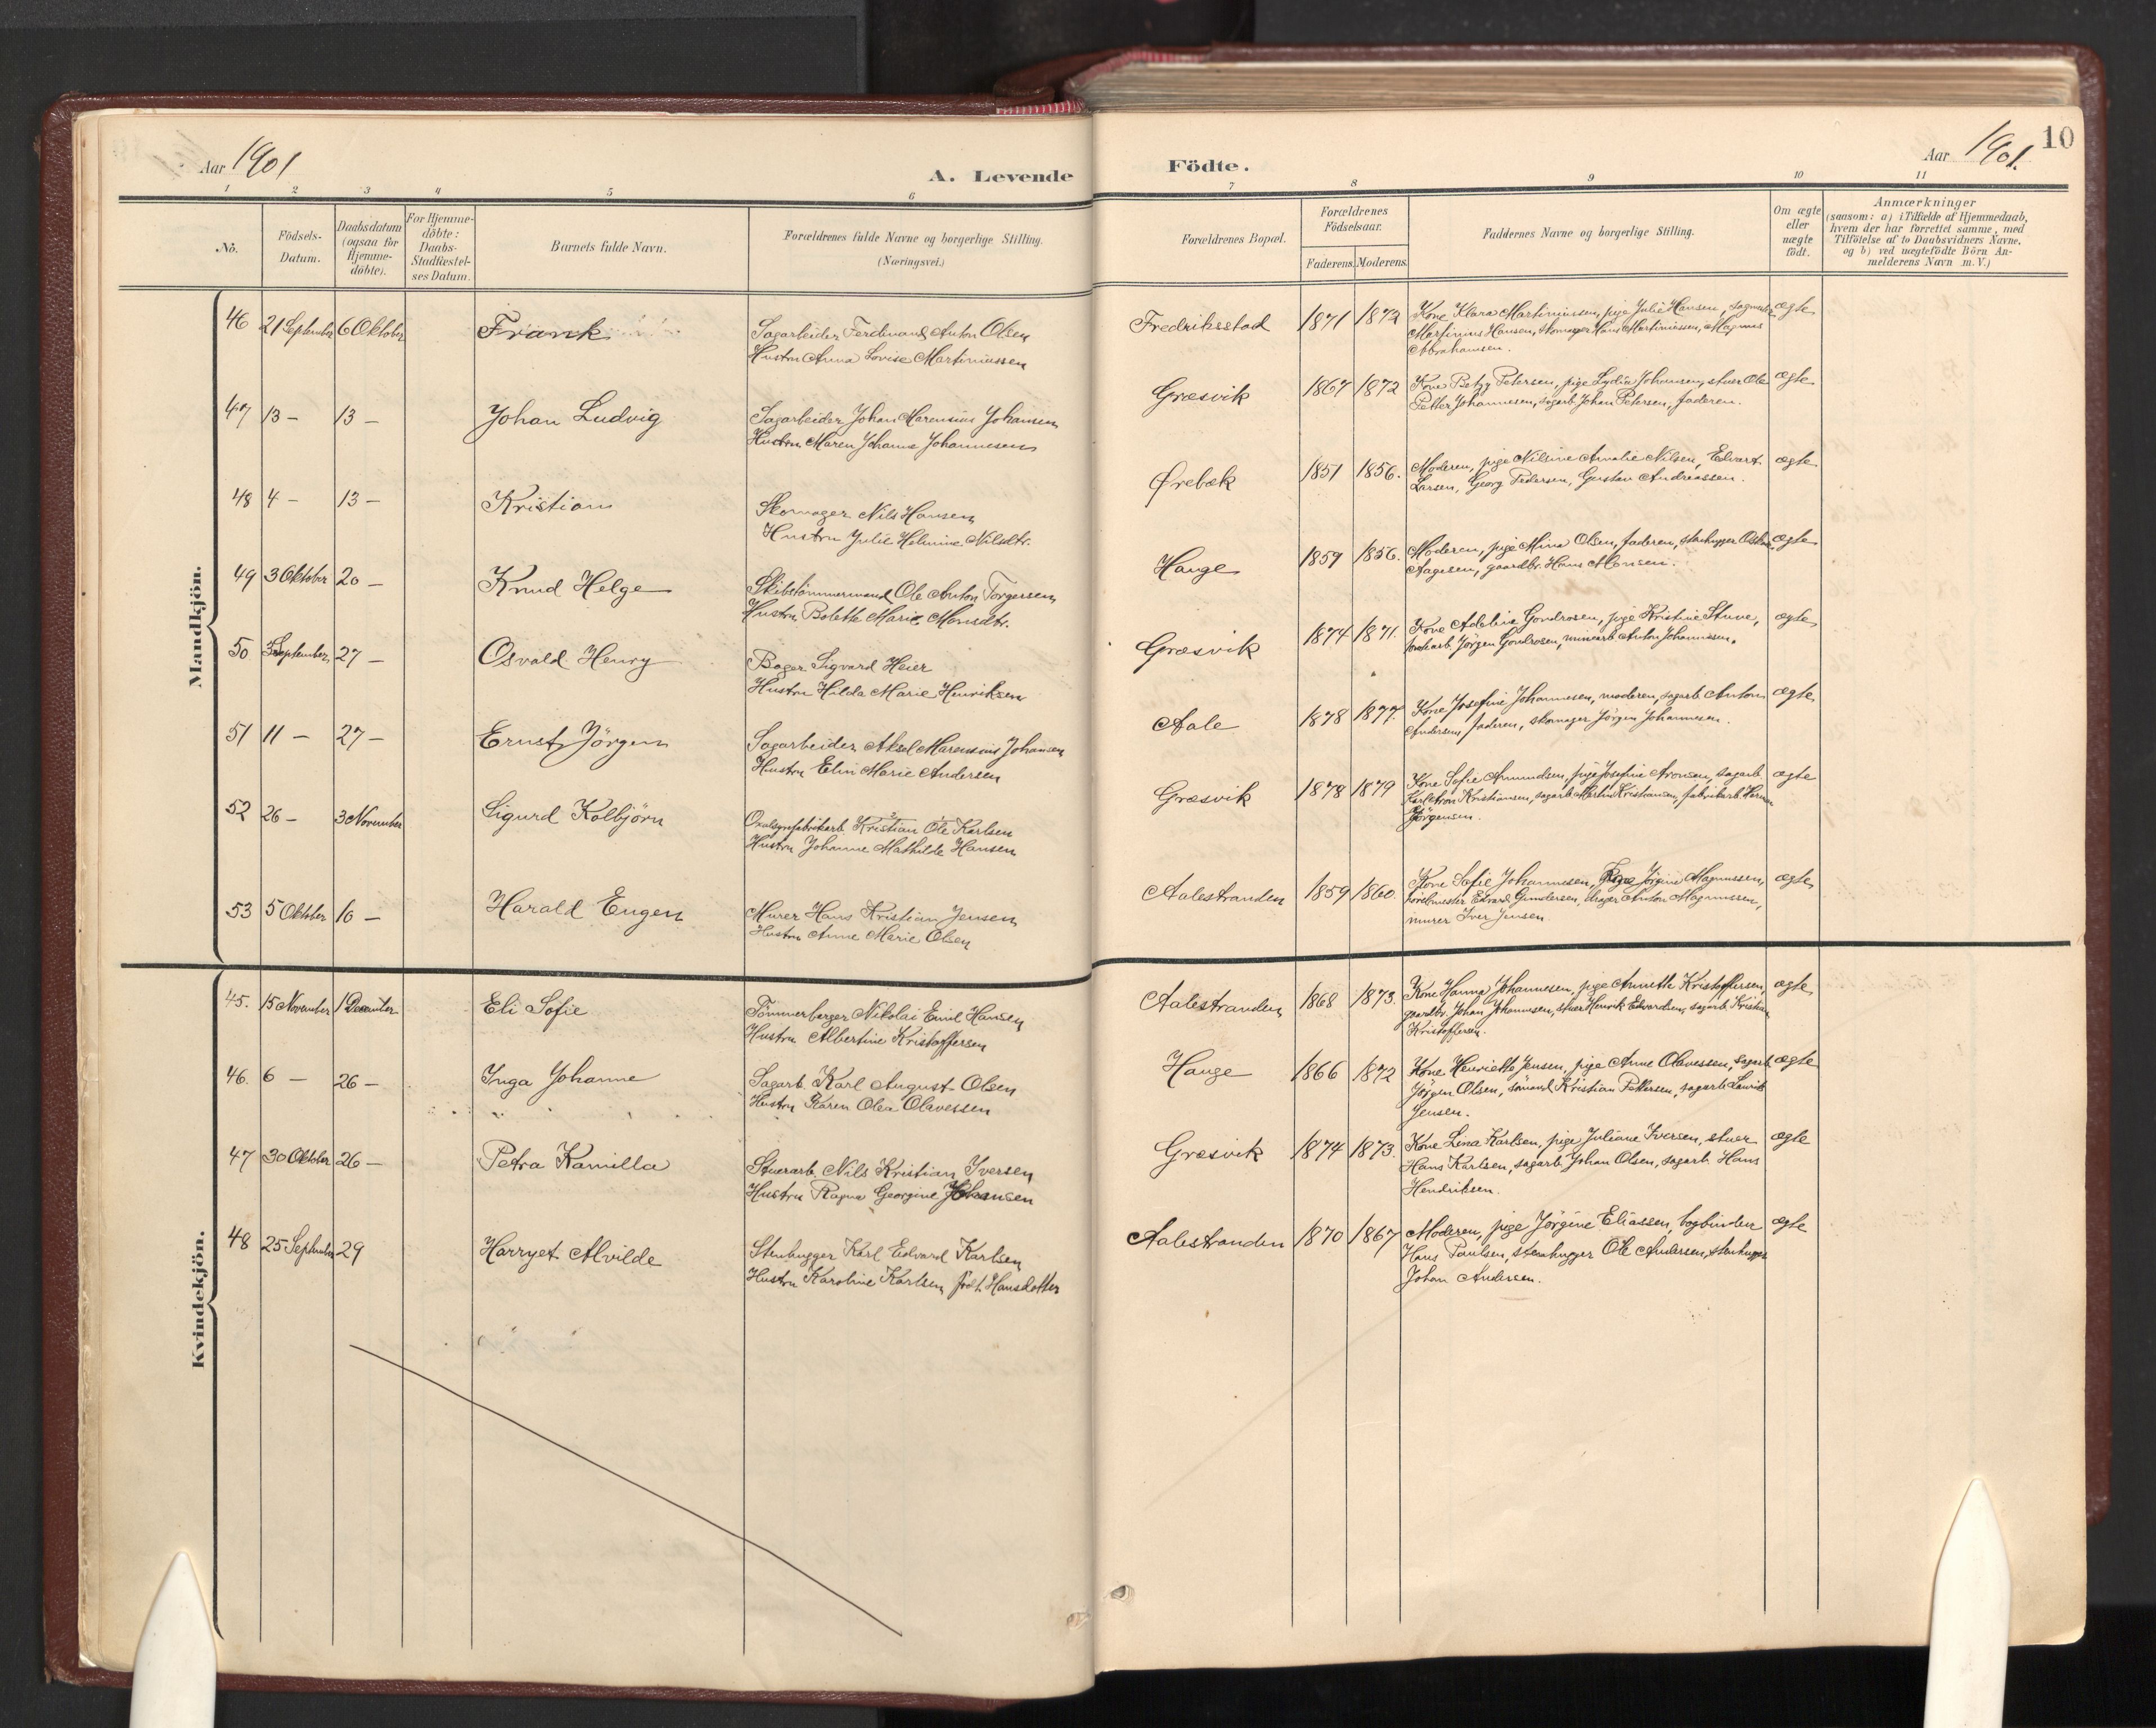 Aar 1901
A. Levende
1 2 3 4 5 6
No.
Födsels-
Datum.
Daabsdatum
(ogsaa for
Hjemme-
döbte).
For Hjemme-
döbte:
Daabs-
Stadfæstel-
ses Datum.
Barnets fulde Navn.
Forældrenes fulde Navne og borgerlige Stilling.
(Næringsvei.)
Mandkjön.
46 21 September 6 Oktober Frank Sagarbeider Ferdinand Anton Olsen
Hustru Anna Lovise Martiniussen
47 13 – 13 – Johan Ludvig Sagarbeider Johan Marensius Johansen
Hustru Maren Johanne Johannesen
48 4 – 13 – Kristian Skomager Nils Hansen
Hustru Julie Helmine Nilsdtr.
49 3 Oktober 20 – Knud Helge Skibstömmermand Ole Anton Torgersen
Hustru Bolette Marie Monsdtr.
50 September 27 – Osvald Henry Bager Sigvard Heier
Hustru Hilda Marie Henriksen
51 11 – 27 – Ernst Jörgen Sagarbeider Aksel Marensius Johansen
Hustru Elin Marie Andersen
52 26 – 3 November Sigurd Kolbjörn Oxalsyrefabrikarb. Kristian Ole Karlsen
Hustru Johanne Mathilde Hansen
53 5 Oktober 10 – Harald Eugen Murer Hans Kristian Jensen
Hustru Anne Marie Olsen
Kvindekjön.
45. 15 November 1 December Eli Sofie Tömmerbærger Nikolai Emil Hansen
Hustru Albertine Kristoffersen
46. 6 – 26 – Inga Johanne Sagarb. Karl August Olsen
Hustru Karen Olea Olavessen
47 30 Oktober 26 – Petra Kamilla Stuerarb. Nils Kristian Iversen
Hustru Ragna Georgine Johansen
48 25 September 29 Harryet Alvilde Stenhugger Karl Edvard Karlsen
Hustru Karoline Karlsen födt Hansdatter
Födte.
Aar 1901. 10
7 8 9 10 11
Forældrenes Bopæl.
Forældrenes
Födselsaar.
Faderens. Moderens.
Faddernes Navne og borgerlige Stilling.
Om ægte
eller
uægte
födt.
Anmærkninger
(saasom: a) i Tilfælde af Hjemmedaab,
hvem der har forrettet samme, med
Tilföielse af to Daabsvidners Navne,
og b) ved uægtefödte Börn An-
melderens Navn m. V.)
Fredriksstad 1871 1872 Kone Klara Martiniussen, pige Julie Hansen, sagmester ægte
Martinius Hansen, skomager Hans Martiniussen, Magnus
Abrahamsen.
Græsvik 1867 1872 Kone Betzy Petersen, pige Lydia Johansen, stuer Ole ægte
Petter Johannesen, sagarb. Johan Petersen, faderen.
Ørebæk 1851 1856. Moderen, pige Nilsine Amalie Nilsen, Edvart ægte
Larsen, Georg Pedersen, Gustav Andreassen.
Hauge 1859 1856. Moderen, pige Mina Olsen, faderen, stenhugger ægte
Aagesen, gaardbr. Hans Monsen.
Græsvik 1874 1871. Kone Adeline Gondrosen, pige Kristine Stuve, ægte
Jörgen Gondrosen, minearb. Anton Johannesen.
Aale 1878 1877. Kone Josefine Johannesen, moderen, sagarb. Anton ægte
Andersen, faderen, skomager Jörgen Johannesen.
Græsvik 1878 1879 Kone Sofie Amundsen, pige Josefine Aronsen, sagarb. ægte
Kristiansen, sagarb. Martin Kristiansen, fabrikarb. Herman
Jörgensen.
Aalestranden 1859 1860. Kone Sofie Johannesen, Pige Jörgine Magnussen, ægte
Edvard Gundersen, drager Anton Magnussen,
murer Iver Jensen.
Aalestranden 1868 1873. Kone Hanna Johannesen, pige Annette Kristoffersen, ægte
gaardbr. Johan Johannesen, stuer Henrik Edvardsen, sagarb. Kristian
Kristoffersen.
Hauge 1866 1872 Kone Henriette Jensen, pige Anne Olavessen, sagarb. ægte
Jörgen Olsen, sömand Kristian Pettersen, sagarb. Laurits
Jensen.
Græsvik 1874 1873. Kone Lina Karlsen, pige Juliane Iversen, stuer ægte
Hans Karlsen, sagarb. Johan Olsen, sagarb. Hans
Hendriksen.
Aalestranden 1870 1867 Moderen, pige Jörgine Eliassen, bogbinder ægte
Hans Paulsen, stenhugger Ole Andersen, stenhugger
Johan Andersen.